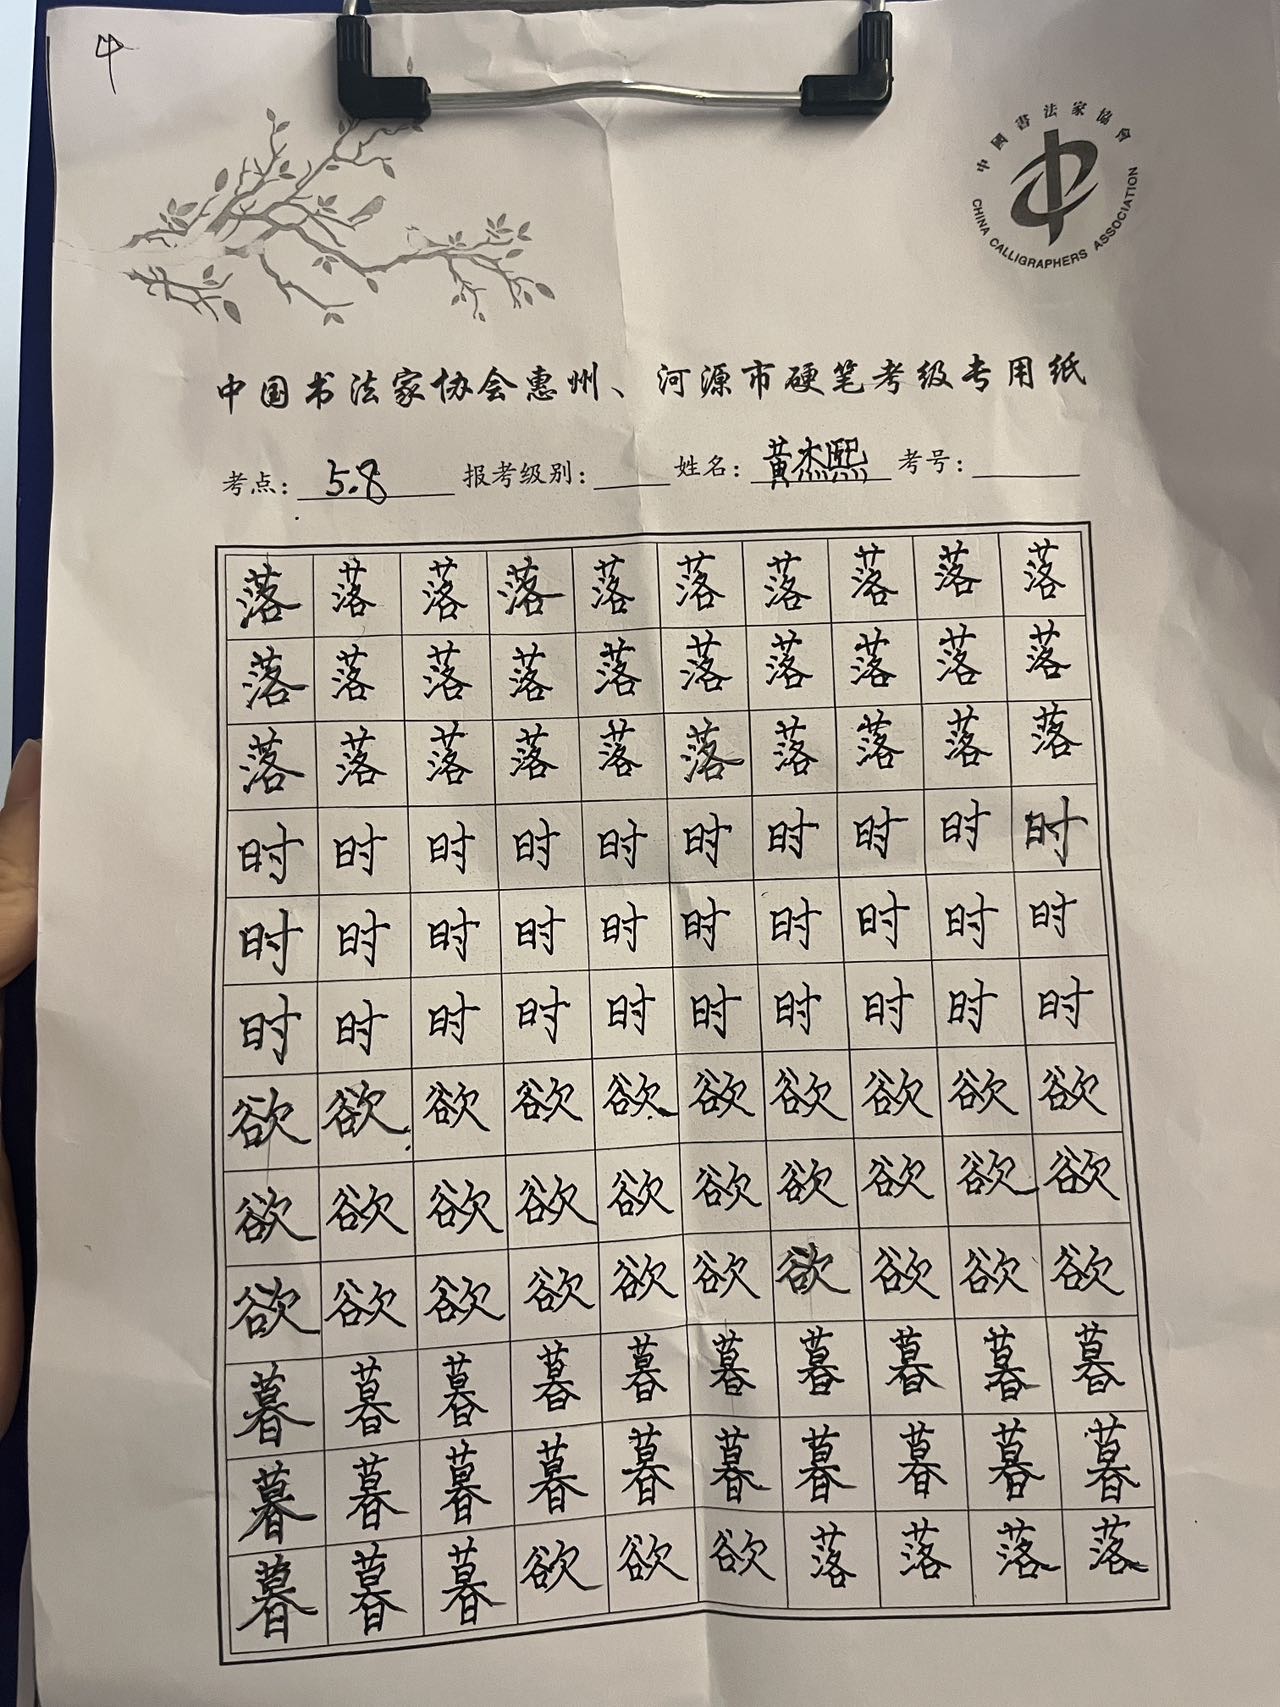 4
中國書法家協會
CHINA CALLIGRAPHERS ASSOCIATION
中国书法家协会惠州、河源市硬笔考级专用纸
考点：5.8 报考级别： 姓名：黄杰熙 考号：
落落落落落落落落落落
落落落落落落落落落落
落落落落落落落落落落
时时时时时时时时时时
时时时时时时时时时时
时时时时时时时时时时
欲欲欲欲欲欲欲欲欲欲
欲欲欲欲欲欲欲欲欲欲
欲欲欲欲欲欲欲欲欲欲
暮暮暮暮暮暮暮暮暮暮
暮暮暮暮暮暮暮暮暮暮
暮暮暮欲欲欲落落落落